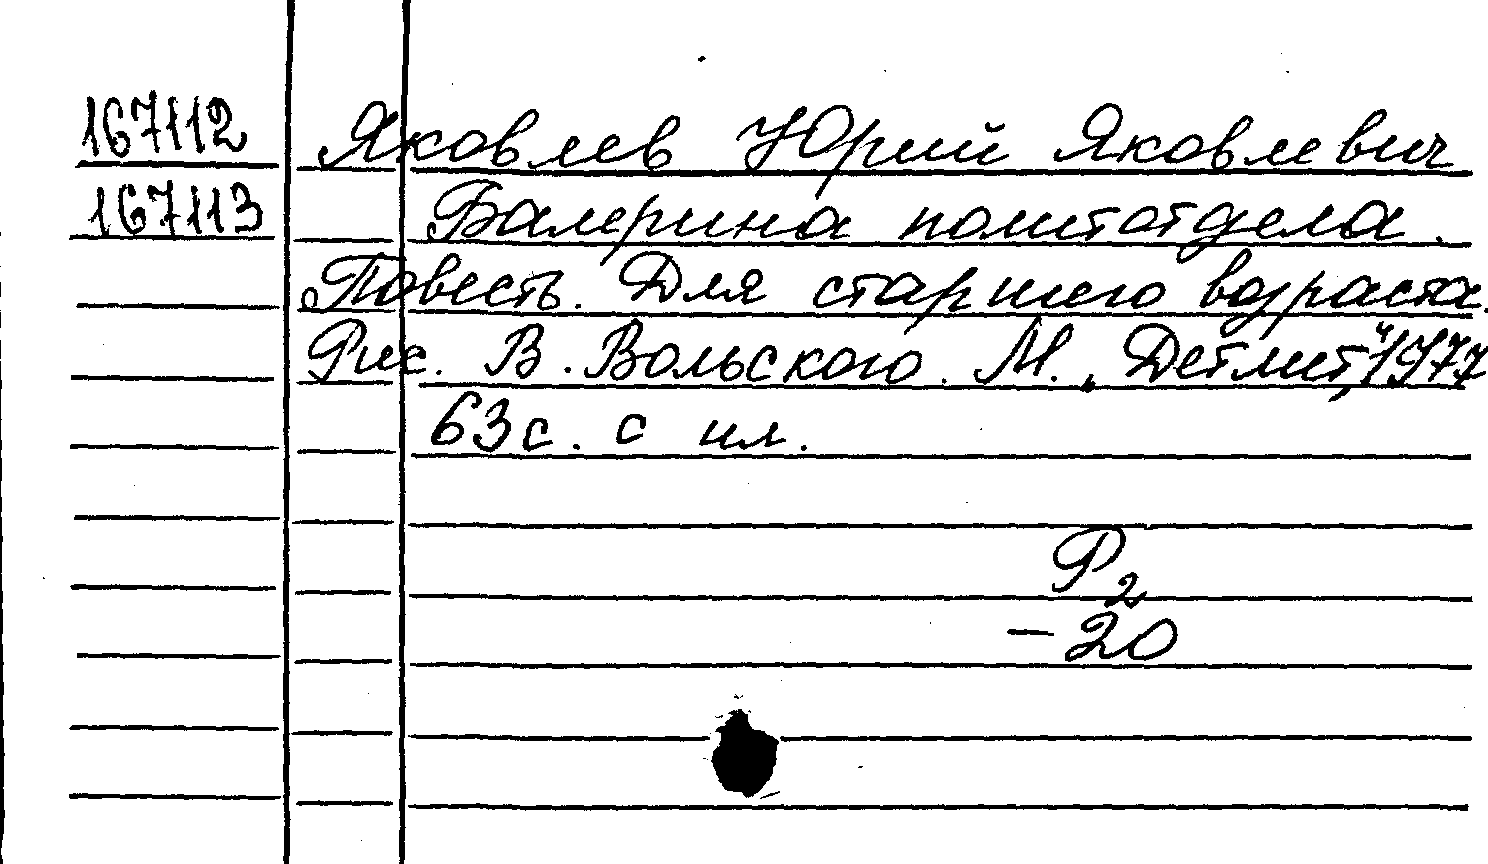 167112 Яковлев Юрий Яковлевич
167113 Балерина политотдела.
Повесть. Для старшего возраста.
Рис. В. Вольского. М. „Детлит", 1977
63 с. с ил.
Р2
-20